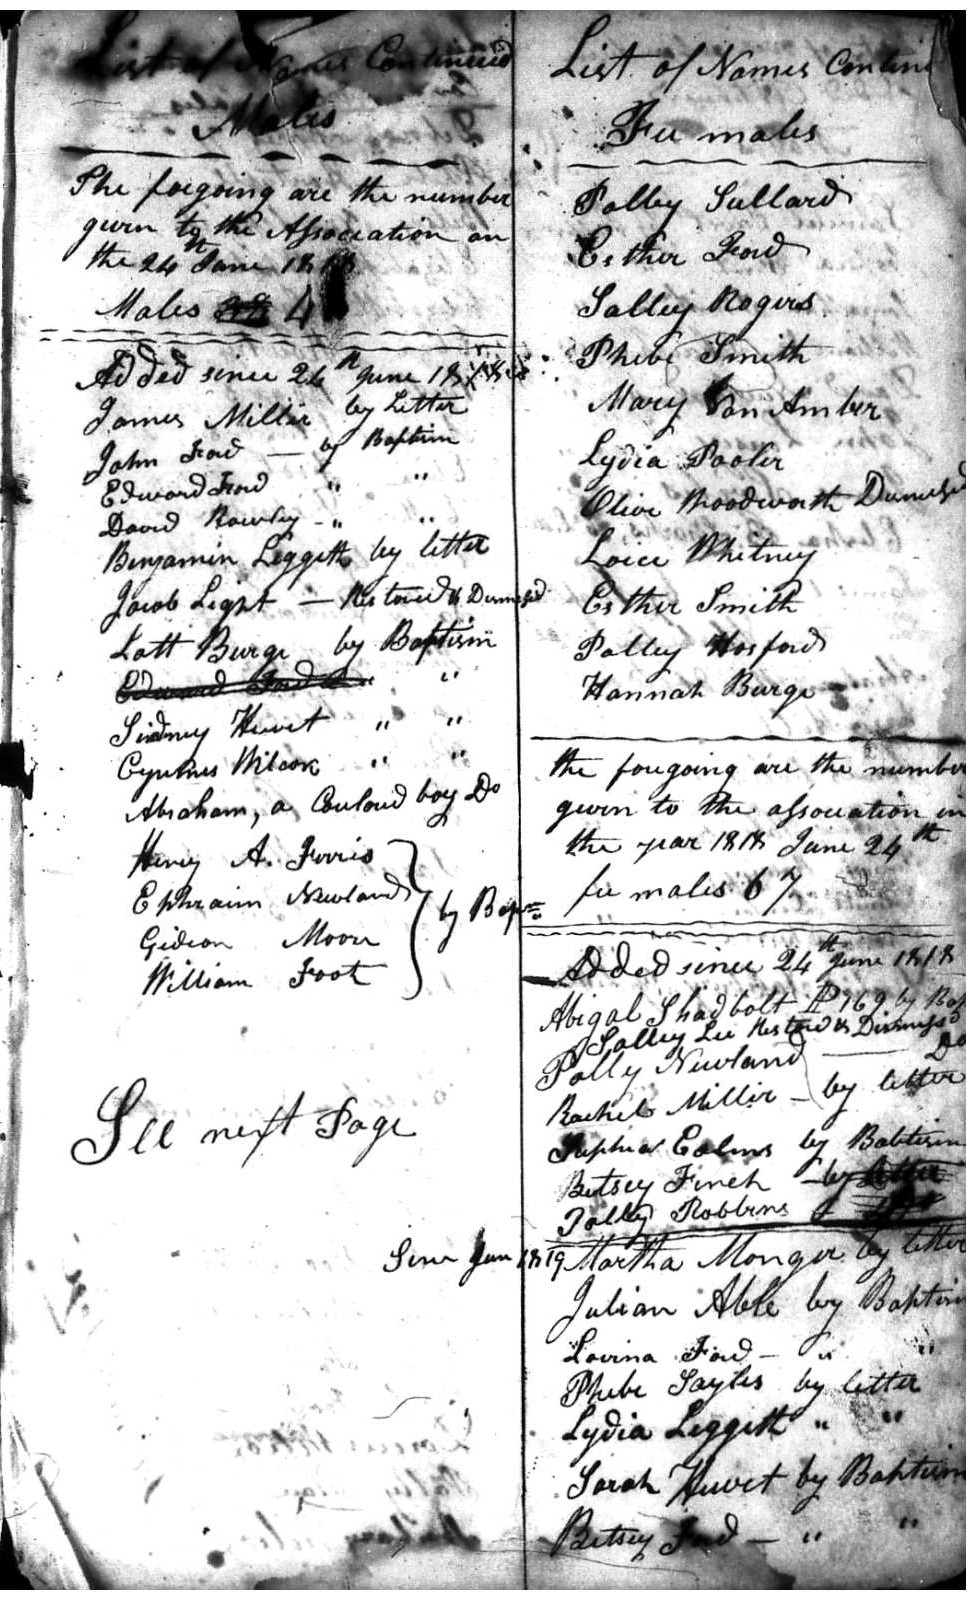 List of Names Continued
Males
The forgoing are the number
givn to the Association on
the 24th June 1818
Males 4
Added since 24th June 1818
James Miller by Letter
John Ford — by Baptism
Edward Ford " "
David Rowley - " "
Benjamin Leggett by letter
Jacob Light — Restored & Dismissed
Lott Burge by Baptism
Edward Ford "
Sidney Hewet " "
Cyrenus Wilcox " "
Abraham, a Coulourd boy Do
Henry A. Ferris
Ephraim Newland
Gideon Moore
William Foot
by Bapm
See next Page
List of Names Contin
Fee males
Polley Sullard
Esther Ford
Salley Rogers
Phebe Smith
Mary Van Amber
Lydia Pooler
Olive Woodworth Dismissed
Loice Whitney
Esther Smith
Polley Hosford
Hannah Burge
the forgoing are the number
givn to the association in
the year 1818 June 24th
fee males 67
Added since 24th June 1818
Abigal Shadbolt P 169 by Bap
Salley Lee Restored & Dismissd
Polly Newland — Do
Rachel Miller — by letter
Sophia Eslms by Babtism
Betsey Finch — by letter
Polley Robbins
Sinc Jan 1819 Martha Monger by letter
Julian Able by Baptism
Lovina Ford — " "
Phebe Sayles by letter
Lydia Leggett " "
Sarah Hewet by Baptism
Betsey Ford — " "